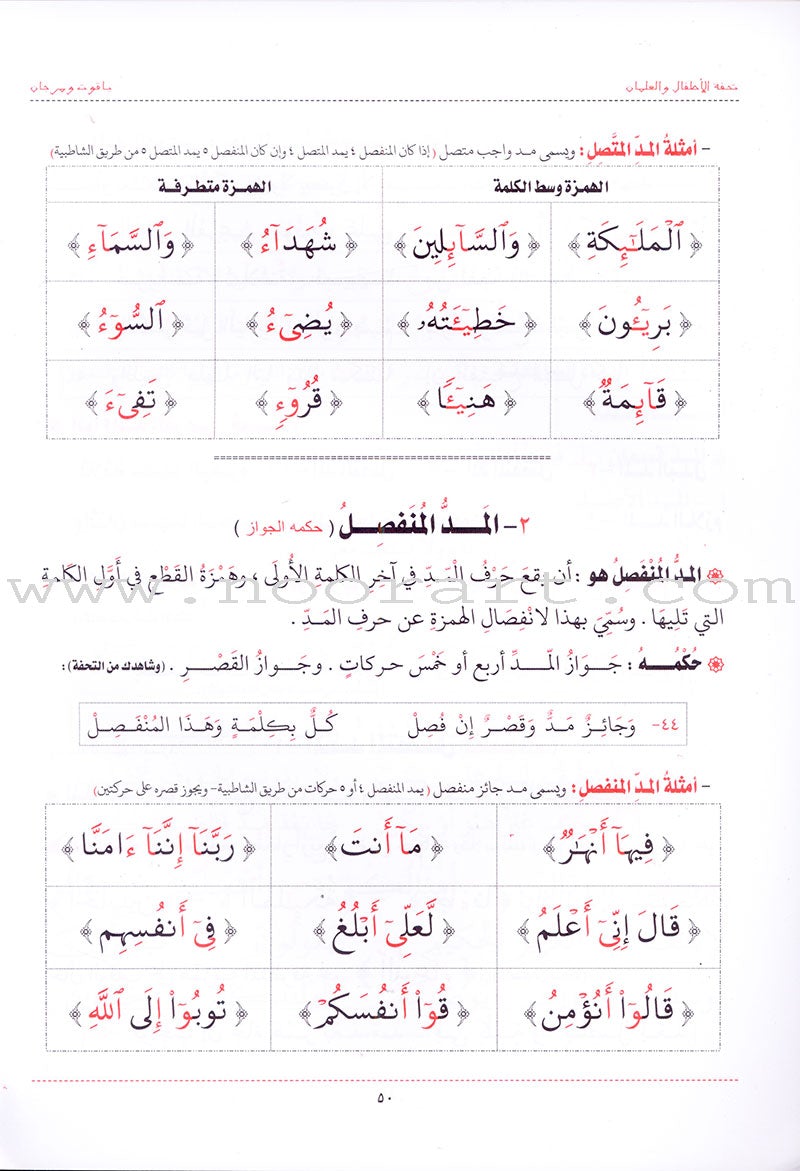 تحفة الأطفال والغلمان ياقوت ومرجان
- أمثلةُ المَدِّ المتَّصلِ : ويسمى مد واجب متصل (إذا كان المنفصل ٤ يمد المتصل ٤ وإن كان المنفصل ٥ يمد المتصل ٥ من طريق الشاطبية)
الهمزة وسط الكلمة الهمزة متطرفة
﴿ ٱلْمَلَـٰٓئِكَةِ ﴾ ﴿ وَٱلسَّآئِلِينَ ﴾ ﴿ شُهَدَآءُ ﴾ ﴿ وَٱلسَّمَآءِ ﴾
﴿ بَرِيٓـُٔونَ ﴾ ﴿ خَطِيٓـَٔتُهُۥ ﴾ ﴿ يُضِىٓءُ ﴾ ﴿ ٱلسُّوٓءُ ﴾
﴿ قَآئِمَةٌ ﴾ ﴿ هَنِيٓـًٔا ﴾ ﴿ قُرُوٓءٍ ﴾ ﴿ تَفِىٓءَ ﴾
٢- المَدُّ المُنفَصِلُ ( حكمه الجواز )
المدُّ المُنْفَصِلُ هو : أن يقعَ حَرْفُ الْمَدِّ في آخِرِ الكلمة الأُولَى ، وهَمْزَةُ القَطْعِ في أَوَّلِ الكَلِمَةِ
التي تَلِيهَا . وسُمِّيَ بهذا لانْفِصَالِ الهمزةِ عن حرفِ المَدِّ .
حُكْمُهُ : جَوَازُ المَدِّ أربع أو خَمْسَ حركاتٍ . وجَوازُ القَصْرِ . (وشاهدك من التحفة) :
٤٤- وَجَائِزٌ مَدٌّ وَقَصْرٌ إِنْ فُصِلْ كُلٌّ بِكِلْمَةٍ وَهَذَا المُنْفَصِلْ
- أمثلةُ المَدِّ المنفصلِ : ويسمى مد جائز منفصل (يمد المنفصل ٤ أو ٥ حركات من طريق الشاطبية- ويجوز قصره على حركتين)
﴿ فِيهَآ أَنْهَـٰرٌ ﴾ ﴿ مَآ أَنتَ ﴾ ﴿ رَبَّنَآ إِنَّنَآ ءَامَنَّا ﴾
﴿ قَالَ إِنِّىٓ أَعْلَمُ ﴾ ﴿ لَّعَلِّىٓ أَبْلُغُ ﴾ ﴿ فِىٓ أَنفُسِهِم ﴾
﴿ قَالُوٓا۟ أَنُؤْمِنُ ﴾ ﴿ قُوٓا۟ أَنفُسَكُمْ ﴾ ﴿ تُوبُوٓا۟ إِلَى ٱللَّهِ ﴾
٥٠
www.noorart.com